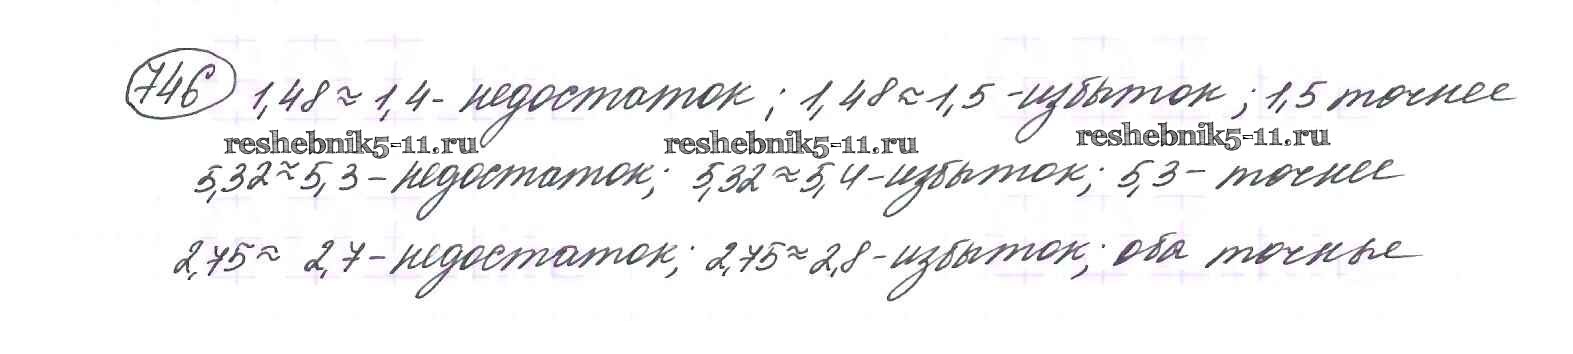 746 1,48 ≈ 1,4 - недостаток; 1,48 ≈ 1,5 - избыток; 1,5 точнее
reshebnik5-11.ru reshebnik5-11.ru reshebnik5-11.ru
5,32 ≈ 5,3 - недостаток; 5,32 ≈ 5,4 - избыток; 5,3 - точнее
2,75 ≈ 2,7 - недостаток; 2,75 ≈ 2,8 - избыток; оба точные